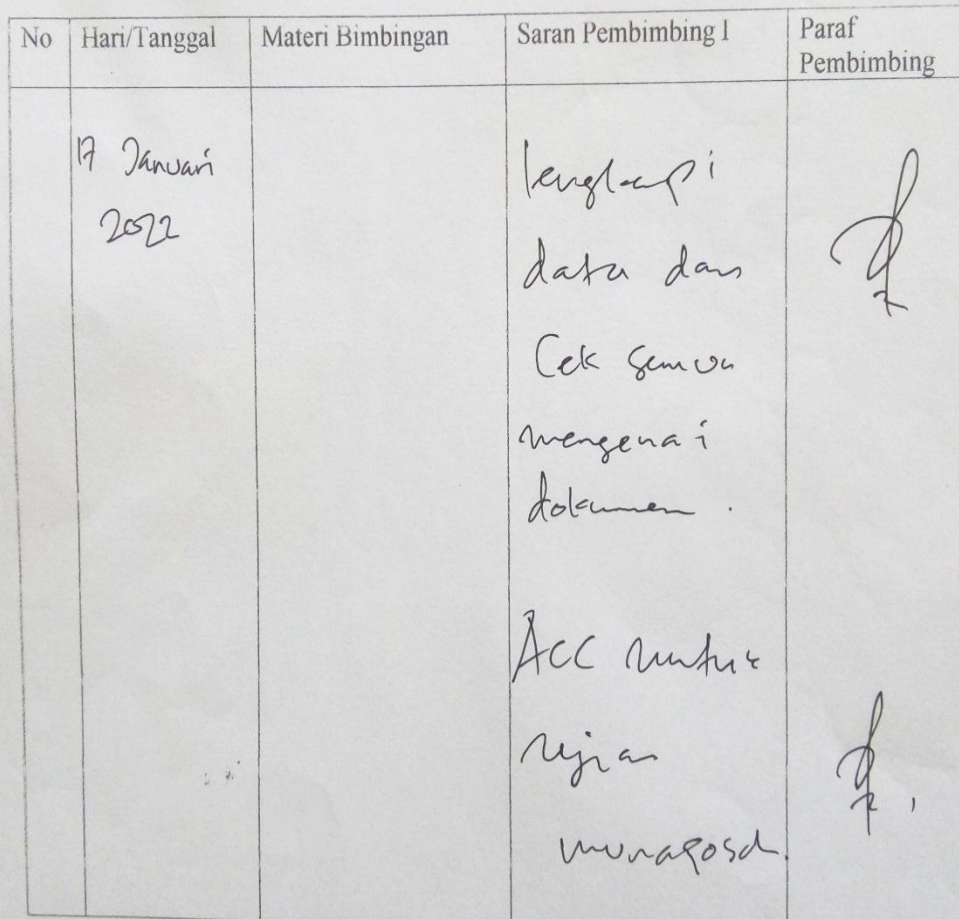 No Hari/Tanggal Materi Bimbingan Saran Pembimbing I Paraf Pembimbing
17 Januari
2022
lengkapi
data dan
Cek semua
mengenai
dokumen.
ACC untuk
ujian
munaqosah.